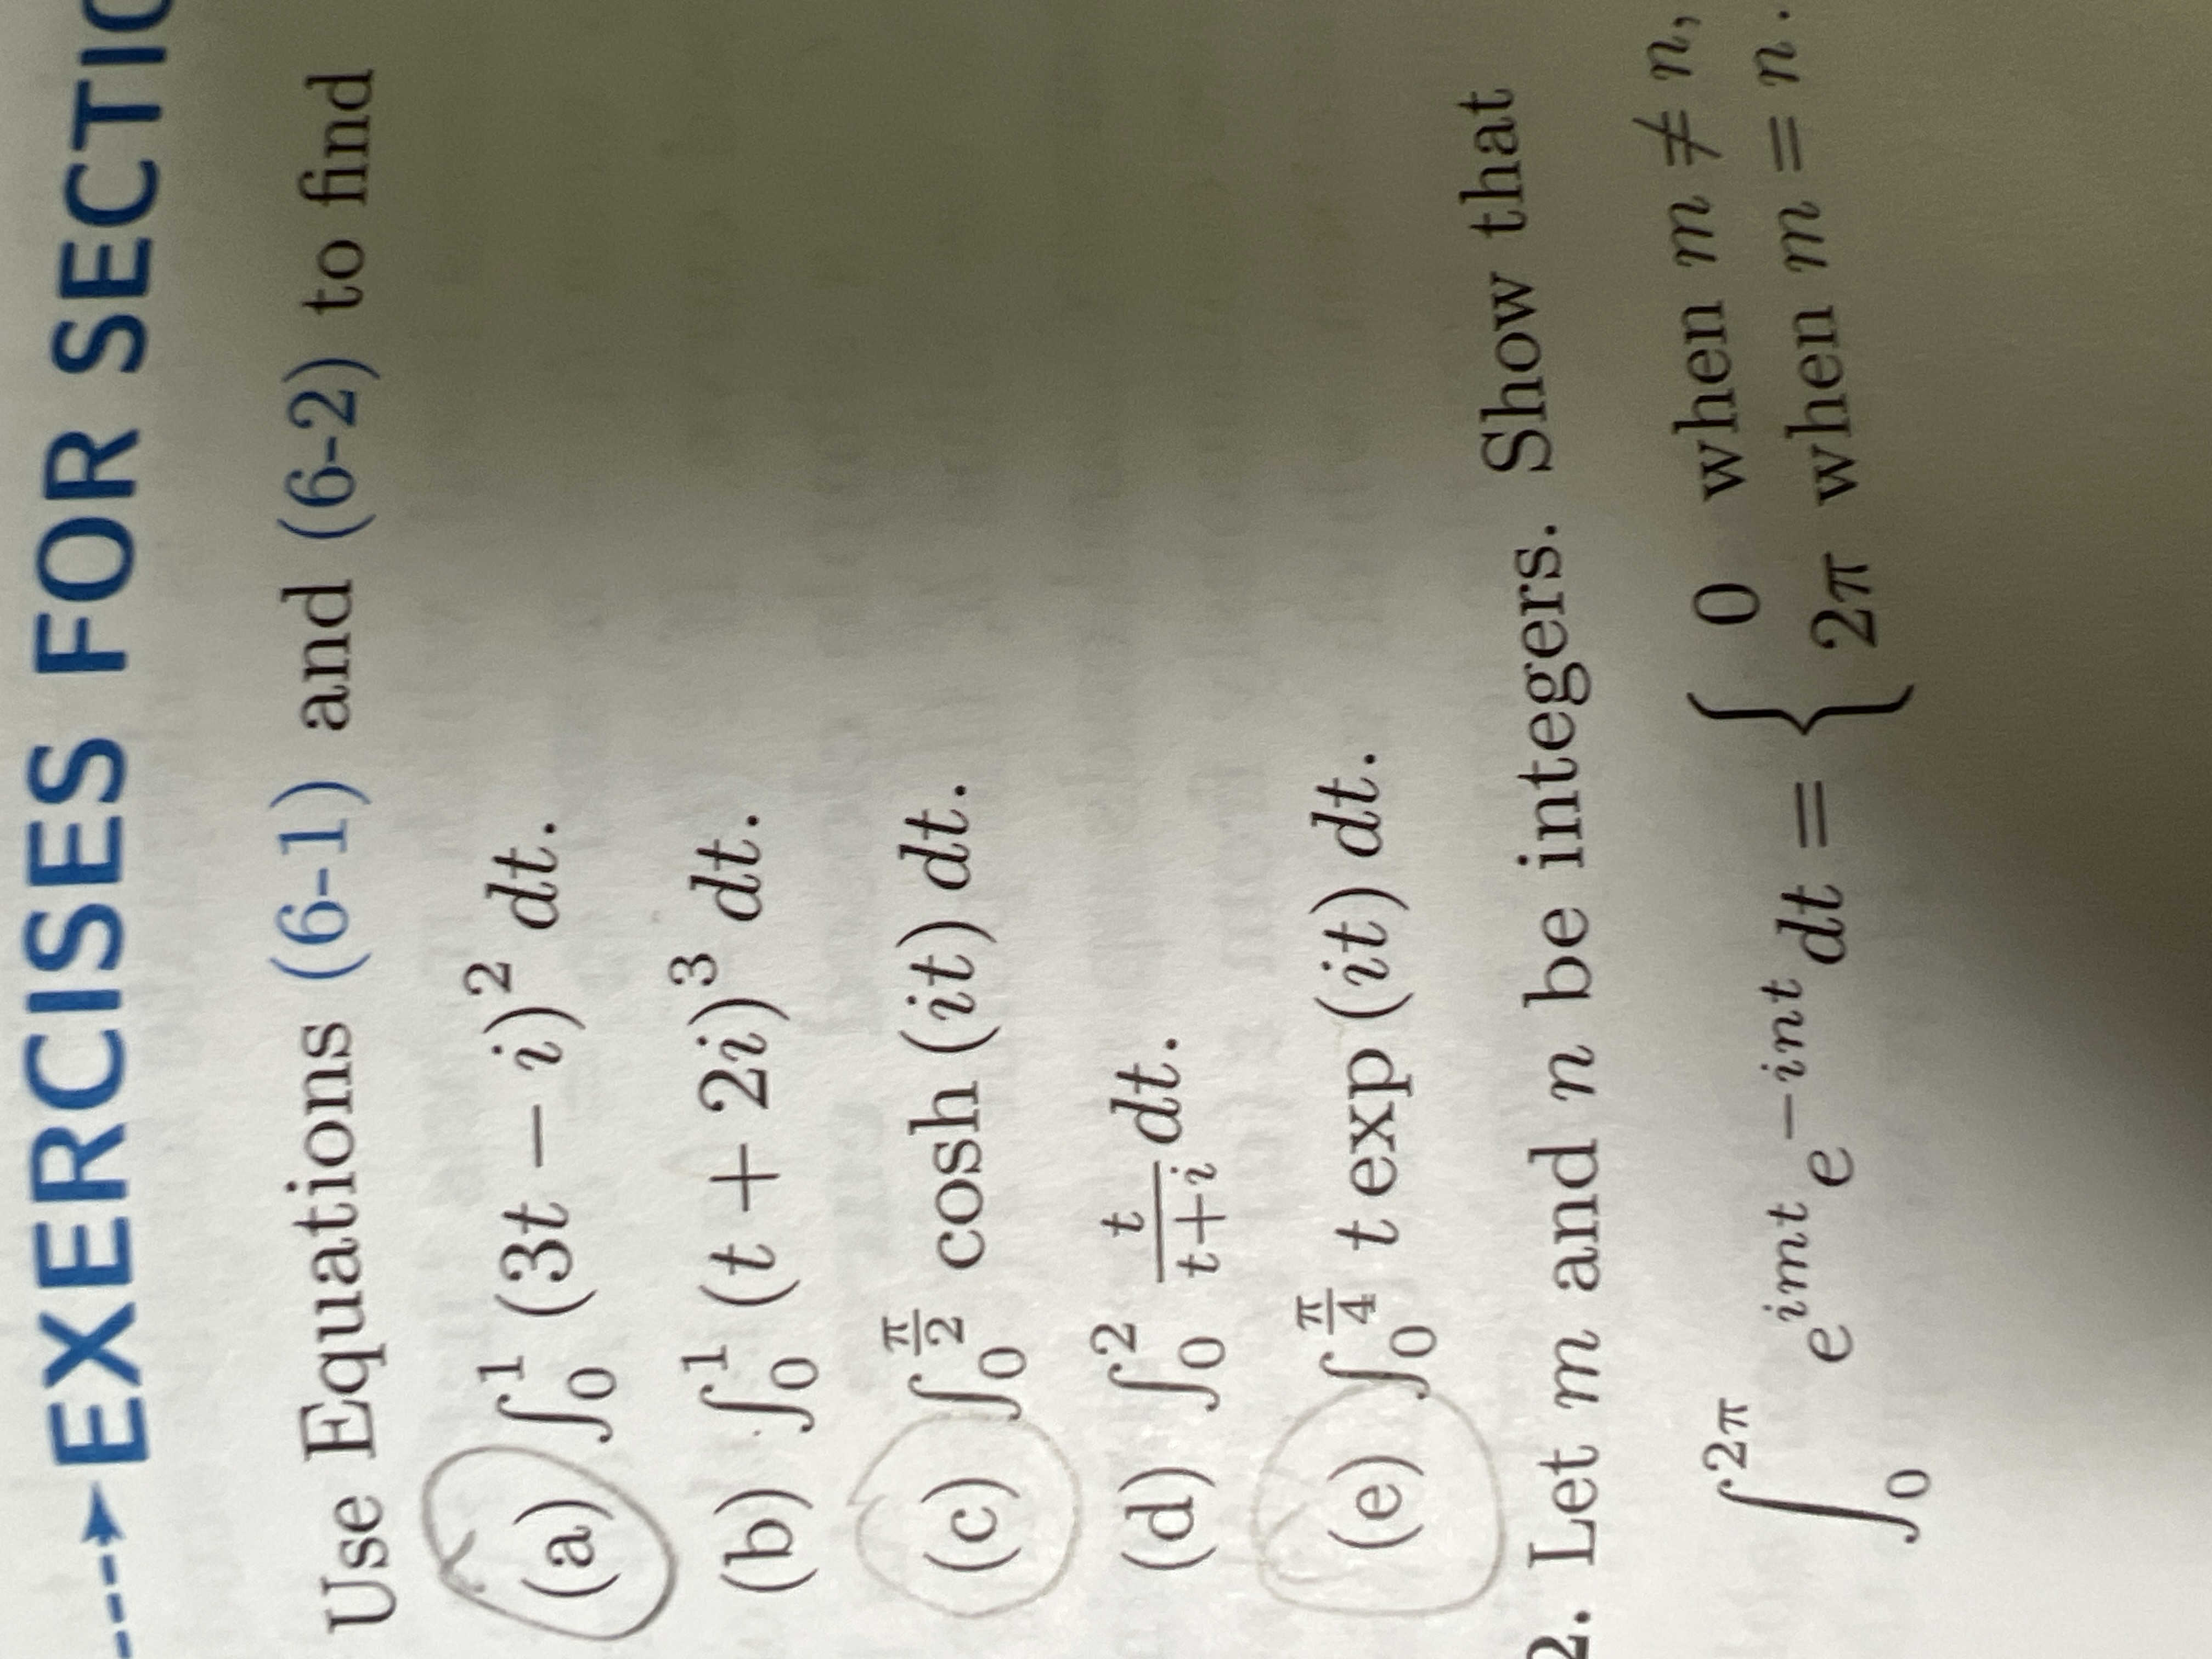 EXERCISES FOR SECTIO
Use Equations (6-1) and (6-2) to find
(a) ∫₀¹ (3t − i)² dt.
(b) ∫₀¹ (t + 2i)³ dt.
(c) ∫₀^{π/2} cosh (it) dt.
(d) ∫₀² t/(t+i) dt.
(e) ∫₀^{π/4} t exp (it) dt.
2. Let m and n be integers. Show that
∫₀^{2π} e^{imt} e^{−int} dt = { 0 when m ≠ n,
2π when m = n.